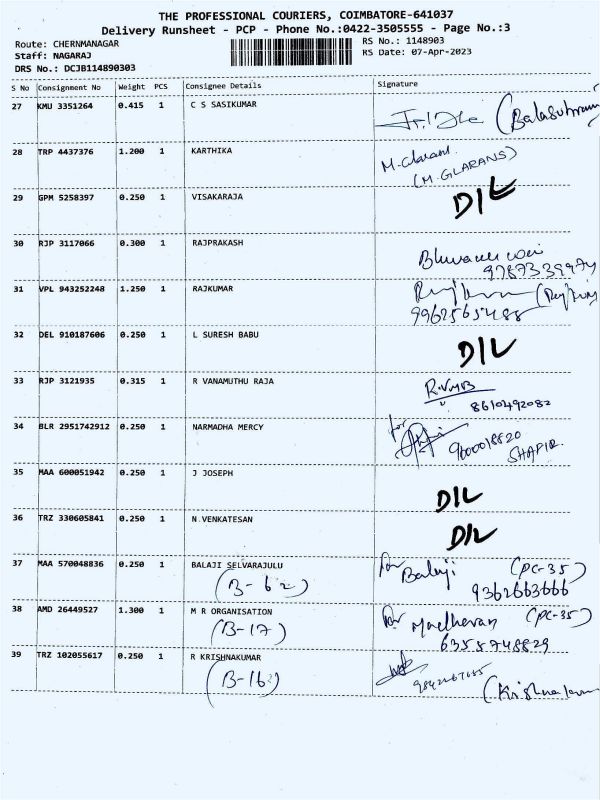 THE PROFESSIONAL COURIERS, COIMBATORE-641037
Delivery Runsheet - PCP - Phone No.:0422-3505555 - Page No.:3
Route: CHERNMANAGAR
Staff: NAGARAJ
DRS No.: DCJB114890303
RS No.: 1148903
RS Date: 07-Apr-2023
S No Consignment No Weight PCS Consignee Details Signature
27 KMU 3351264 0.415 1 C S SASIKUMAR
28 TRP 4437376 1.200 1 KARTHIKA
(M. GLARANS)
29 GPM 5258397 0.250 1 VISAKARAJA D/L
30 RJP 3117066 0.300 1 RAJPRAKASH
31 VPL 943252248 1.250 1 RAJKUMAR
9962565488
32 DEL 910187606 0.250 1 L SURESH BABU D/L
33 RJP 3121935 0.315 1 R VANAMUTHU RAJA
8610492082
34 BLR 2951742912 0.250 1 NARMADHA MERCY for
9600018820
SHAPIR.
35 MAA 600051942 0.250 1 J JOSEPH D/L
36 TRZ 330605841 0.250 1 N VENKATESAN D/L
37 MAA 570048836 0.250 1 BALAJI SELVARAJULU for Balaji (PC-35)
(B-62) 9362663666
38 AMD 26449527 1.300 1 M R ORGANISATION for Madhavan (PC-35)
(B-17) 6355748829
39 TRZ 102055617 0.250 1 R KRISHNAKUMAR
(B-162)